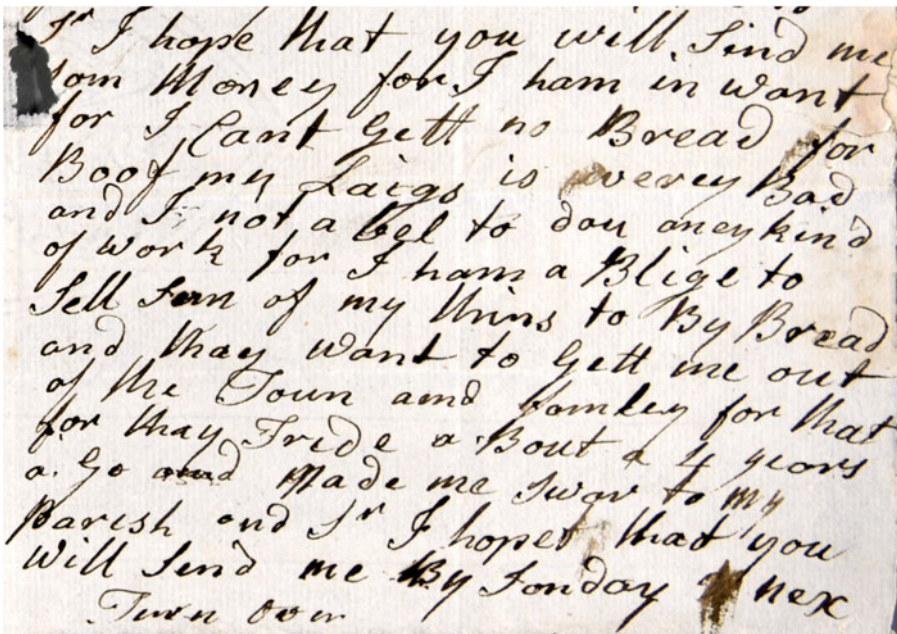 Sr I hope that you will Sind me
som Money for I ham in want
for I Cant Gett no Bread for
Boof my Laigs is verey Bad
and I not a bel to dou aney kind
of work for I ham a Blige to
Sell Sum of my thins to By Bread
and thay want to Gett me out
of the Toun and famley for that
for thay Tride a Bout a 4 years
a Go and Made me Swar to my
Parish and Sr I hope that you
will Send me By Sonday nex
Turn Over